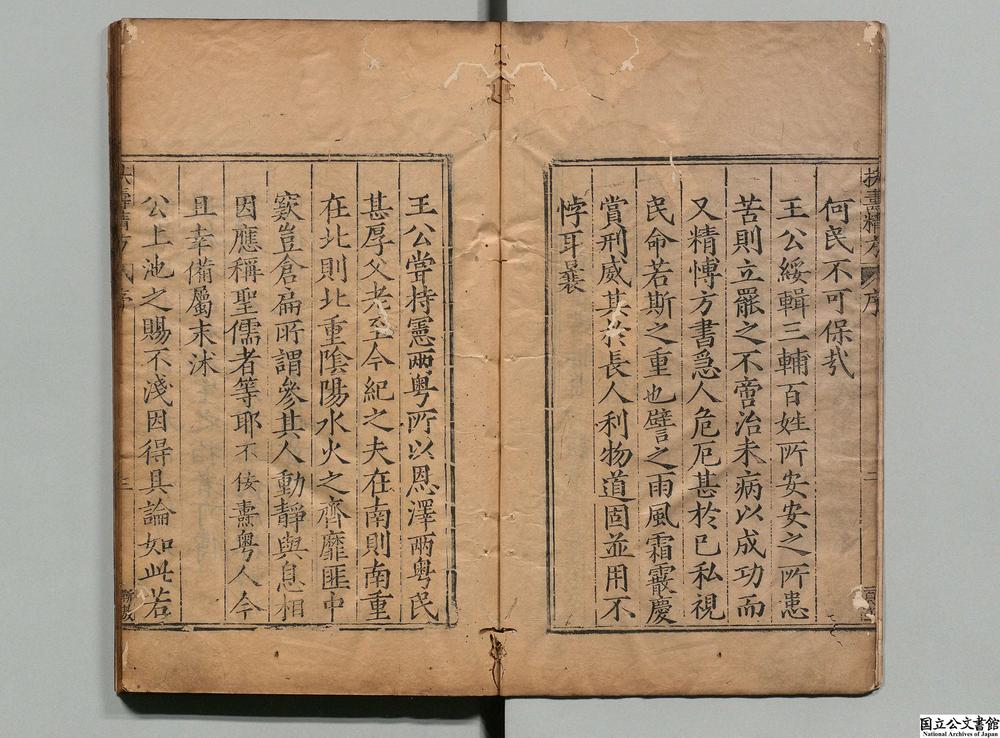 何民不可保哉
王公綏輯三輔百姓所安安之所患
苦則立罷之不啻治未病以成功而
又精愽方書急人危厄甚於已私視
民命若斯之重也譬之雨風霜霰慶
賞刑威其於長人利物道固並用不
悖耳曩
王公嘗持憲兩粤所以恩澤兩粤民
甚厚父老至今紀之夫在南則南重
在北則北重陰陽水火之齊靡匪中
窾豈倉扁所謂參其人動靜與息相
因應稱聖儒者等耶不佞燾粤人今
且幸備屬末沭
公上池之賜不淺因得具論如此若
序
二
三
国立公文書館
National Archives of Japan